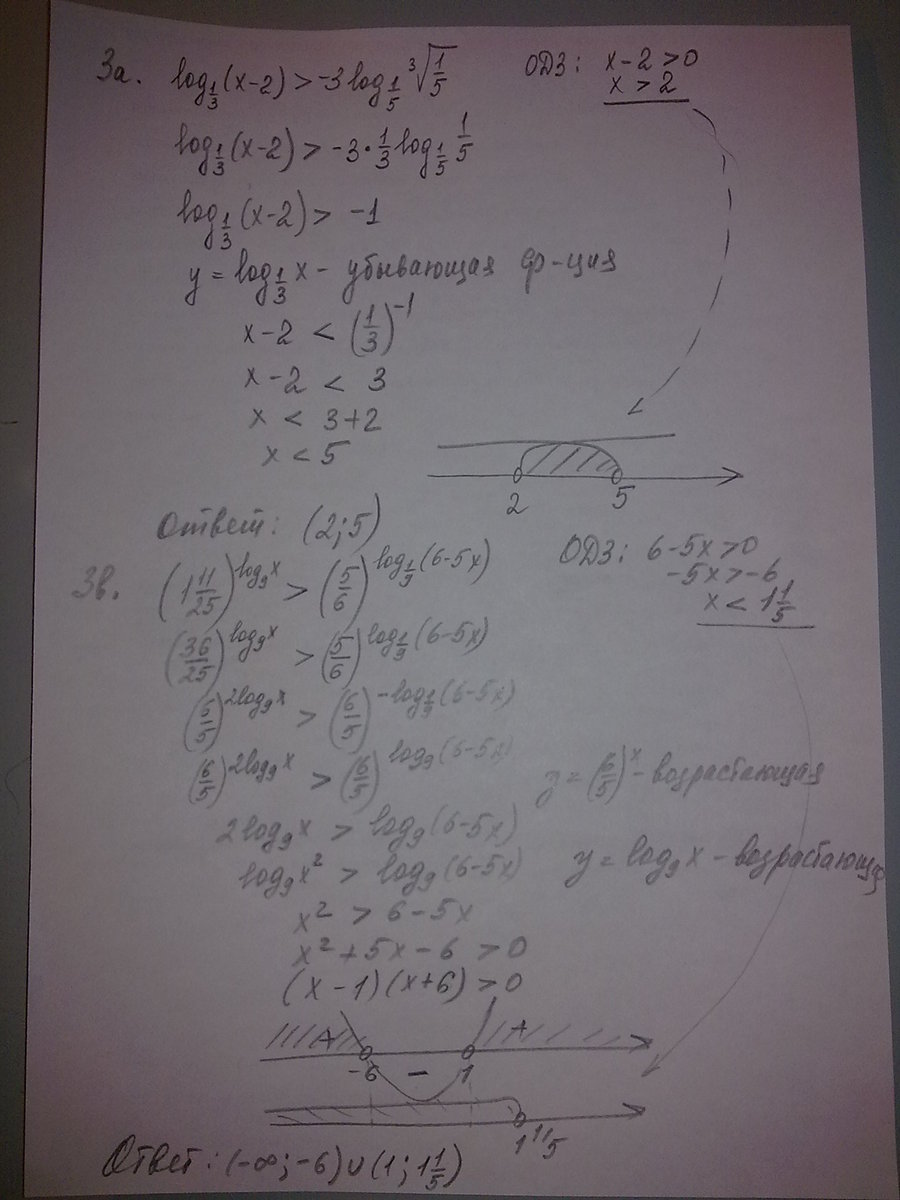 3а. log_{1/3}(x-2) > -3 log_{1/5} ∛(1/5) ОДЗ: x-2 >0
x > 2
log_{1/3}(x-2) > -3·1/3 log_{1/5} 1/5
log_{1/3}(x-2) > -1
y = log_{1/3} x - убывающая ф-ция
x-2 < (1/3)^{-1}
x-2 < 3
x < 3+2
x < 5
2 5
Ответ: (2;5)
3в. (1 11/25)^{log_9 x} > (5/6)^{log_{1/9}(6-5x)} ОДЗ: 6-5x>0
-5x>-6
x < 1 1/5
(36/25)^{log_9 x} > (5/6)^{log_{1/9}(6-5x)}
(6/5)^{2log_9 x} > (6/5)^{-log_{1/9}(6-5x)}
(6/5)^{2log_9 x} > (6/5)^{log_9(6-5x)} y = (6/5)^x - возрастающая
2log_9 x > log_9(6-5x)
log_9 x² > log_9(6-5x) y = log_9 x - возрастающая
x² > 6-5x
x²+5x-6 >0
(x-1)(x+6)>0
+ +
-6 - 1
1 1/5
Ответ: (-∞;-6)∪(1; 1 1/5)